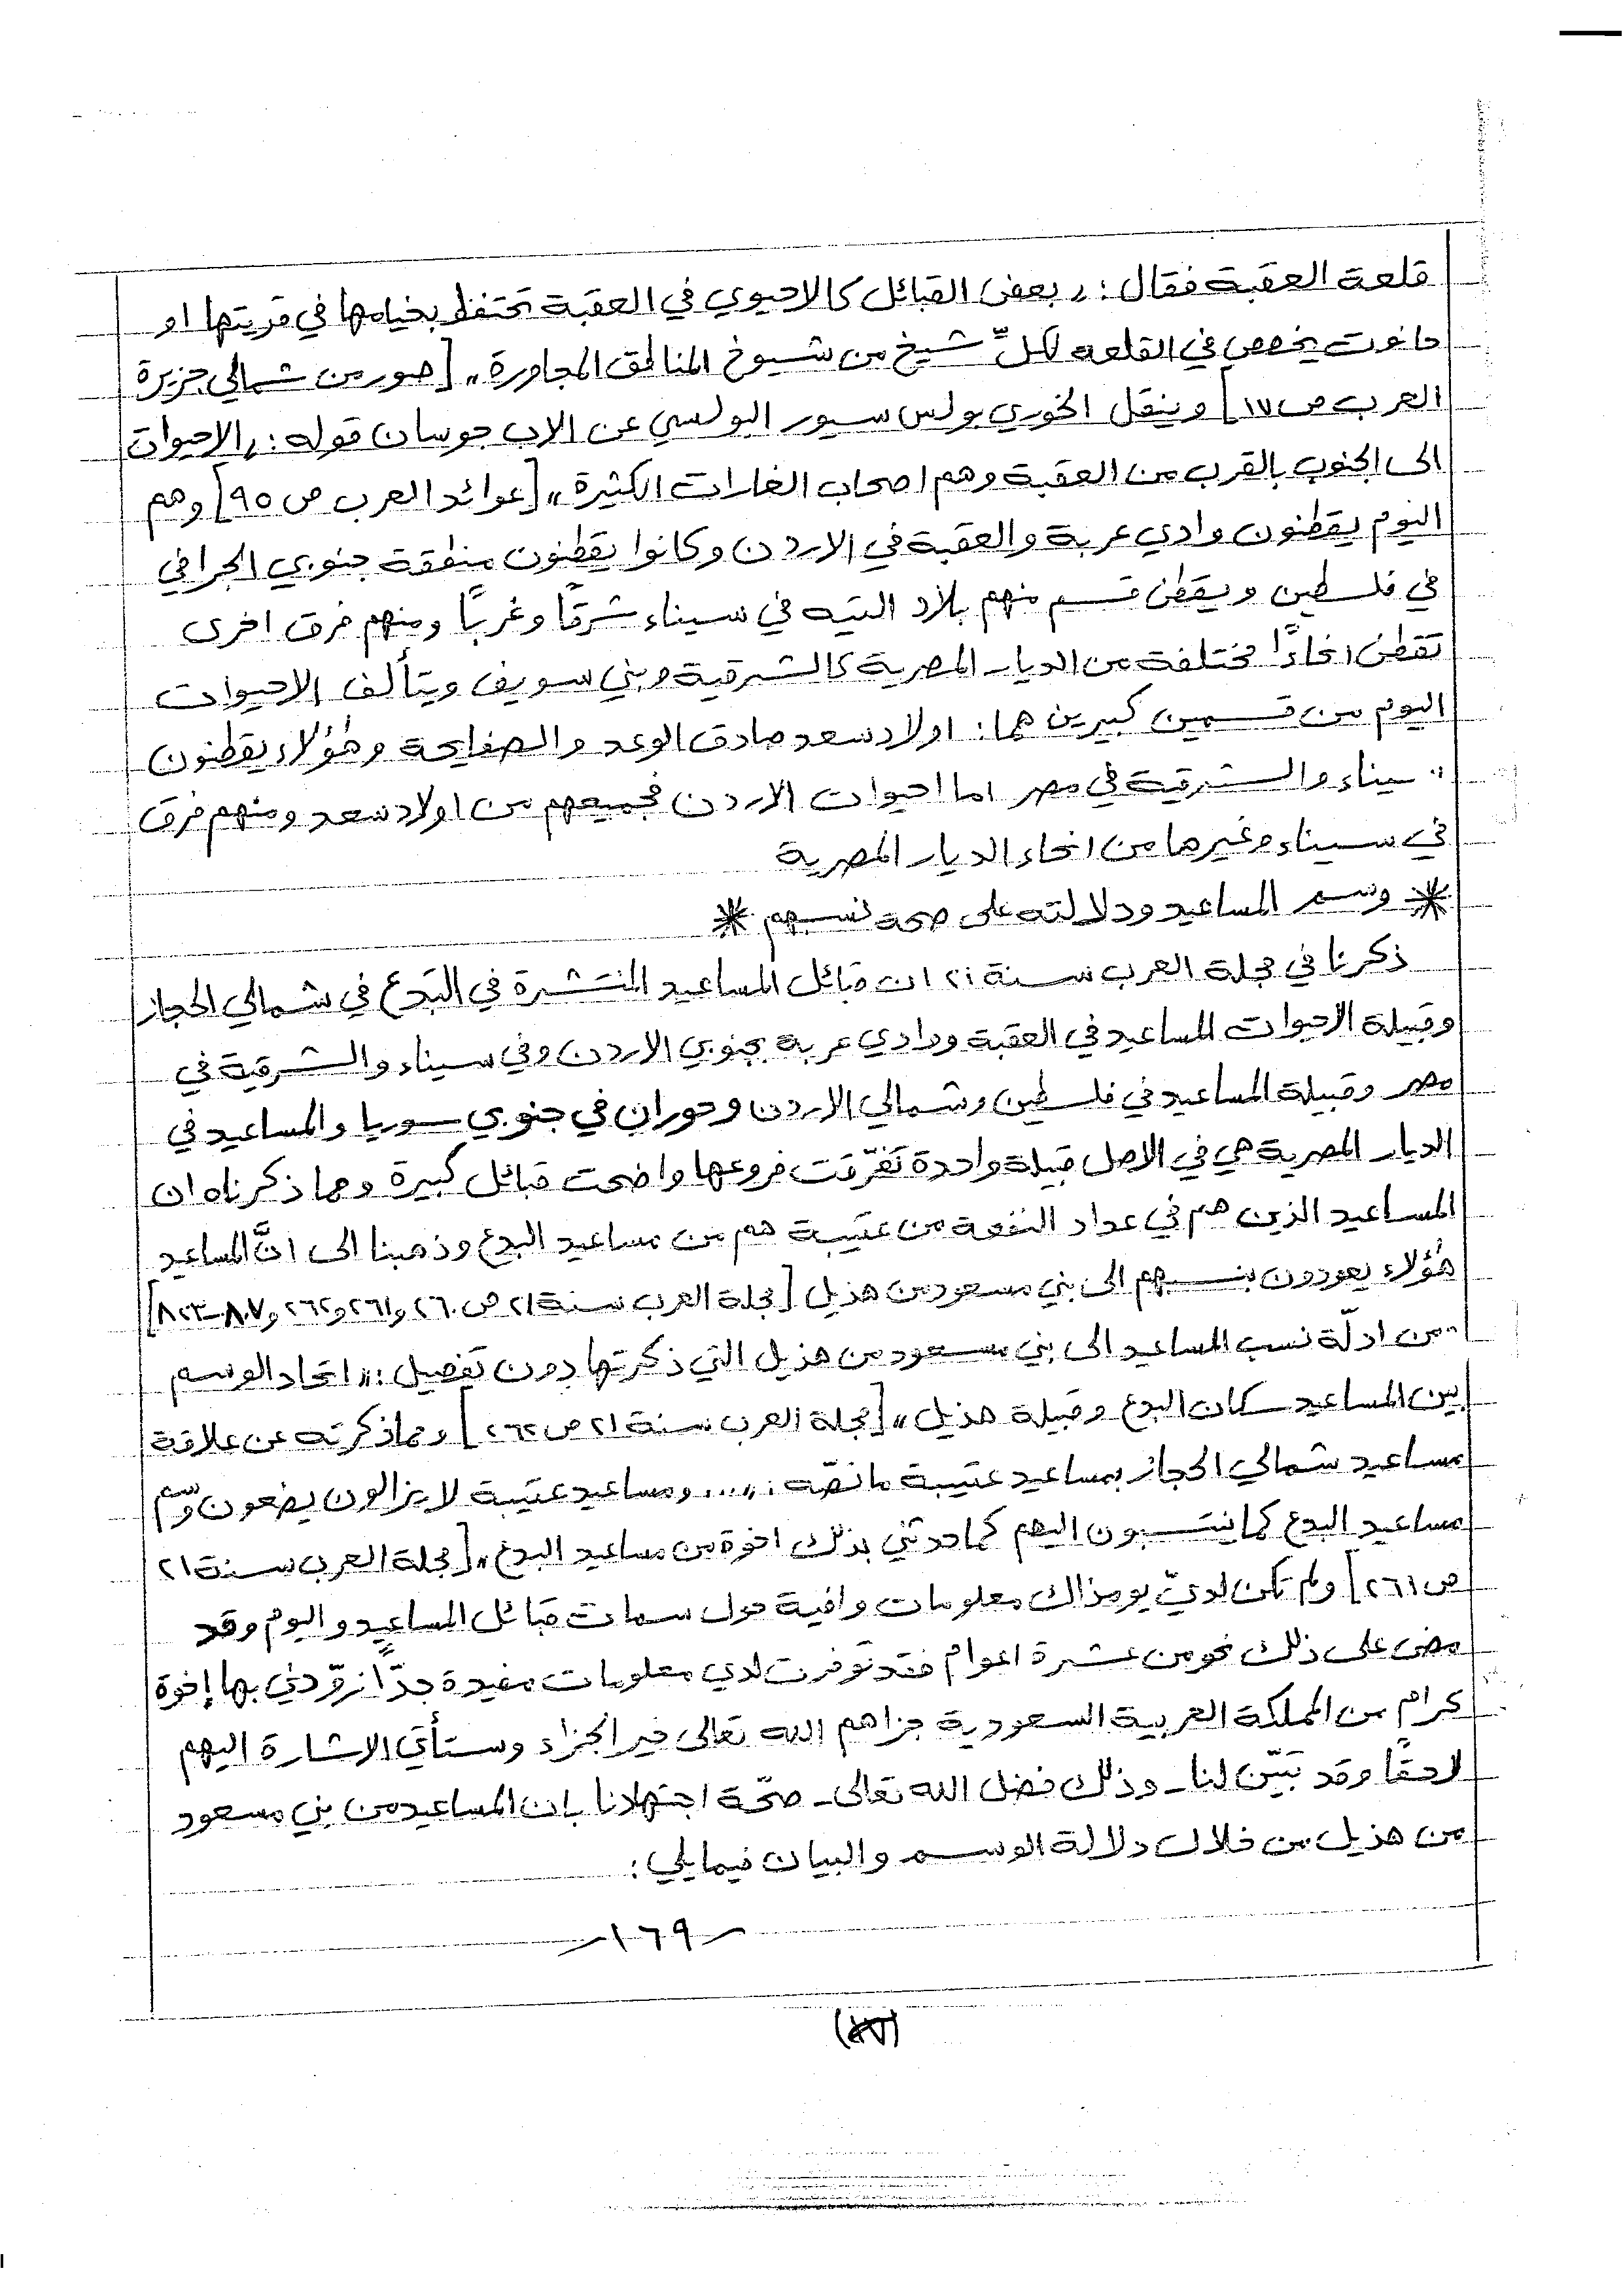 قلعة العقبة فقال: « بعض القبائل كالاحيوي في العقبة تحتفظ بخيامها في قريتها او
حانوت يخصص في القلعه لكلّ شيخ من شيوخ المناطق المجاورة » [صور من شمالي جزيرة
العرب ص ١٧] وينقل الخوري بولس سيور البولسي عن الاب جوسان قوله: « الاحيوات
الى الجنوب بالقرب من العقبة وهم اصحاب الغارات الكثيرة » [عوائد العرب ص ٩٥] وهم
اليوم يقطنون وادي عربة والعقبة في الاردن وكانوا يقطنون منطقة جنوبي الجرافي
في فلسطين ويقطن قسم منهم بلاد التيه في سيناء شرقًا وغربًا ومنهم فرق اخرى
تقطن انحاءً مختلفة من الديار المصرية كالشرقية وبني سويف ويتألف الاحيوات
اليوم من قسمين كبيرين هما: اولاد سعد صادق الوعد والصفايحة وهؤلاء يقطنون
سيناء والشرقية في مصر اما احيوات الاردن فجميعهم من اولاد سعد ومنهم فرق
في سيناء وغيرها من انحاء الديار المصرية
* وسم المساعيد ودلالته على صحة نسبهم *
ذكرنا في مجلة العرب سنة ٢١ ان قبائل المساعيد المنتشرة في البَدع في شمالي الحجاز
وقبيلة الاحيوات المساعيد في العقبة ووادي عربة بجنوبي الاردن وفي سيناء والشرقية في
مصر وقبيلة المساعيد في فلسطين وشمالي الاردن وحوران في جنوبي سوريا والمساعيد في
الديار المصرية هي في الاصل قبيلة واحدة تفرّقت فروعها واضحت قبائل كبيرة ومما ذكرناه ان
المساعيد الذين هم في عداد النفعة من عتيبة هم من مساعيد البدع وذهبنا الى انَّ المساعيد
هؤلاء يعودون بنسبهم الى بني مسعود من هذيل [مجلة العرب سنة ٢١ ص ٢٦٠ و٢٦١ و٢٦٢ و٨٠٧-٨٢٣]
من ادلّة نسب المساعيد الى بني مسعود من هذيل التي ذكرتها دون تفصيل: « اتحاد الوسم
بين المساعيد سكان البدع وقبيلة هذيل » [مجلة العرب سنة ٢١ ص ٢٦٢] ومما ذكرته عن علاقة
مساعيد شمالي الحجاز بمساعيد عتيبة ما نصّه: «... ومساعيد عتيبة لا يزالون يضعون وسم
مساعيد البدع كما ينتسبون اليهم كما حدثني بذلك اخوة من مساعيد البدع » [مجلة العرب سنة ٢١
ص ٢٦١] ولم تكن لديّ يومذاك معلومات وافية حول سمات قبائل المساعيد واليوم وقد
مضى على ذلك نحو من عشرة اعوام فقد توفرت لدي معلومات مفيدة جدًّا زوّدني بها إخوة
كرام من المملكة العربية السعودية جزاهم الله تعالى خير الجزاء وستأتي الاشارة اليهم
لاحقًا وقد تبيّن لنا - وذلك فضل الله تعالى - صحّة اجتهادنا بان المساعيد من بني مسعود
من هذيل من خلال دلالة الوسم والبيان فيما يلي:
- ١٦٩ -